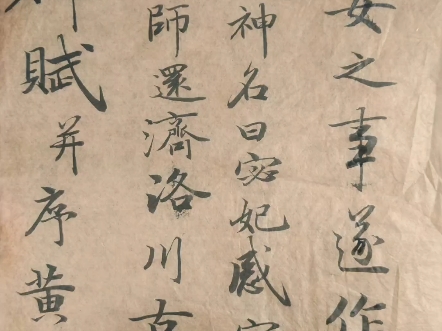 賦并序黃
師還濟洛川古
神名曰宓妃感
女之事遂作